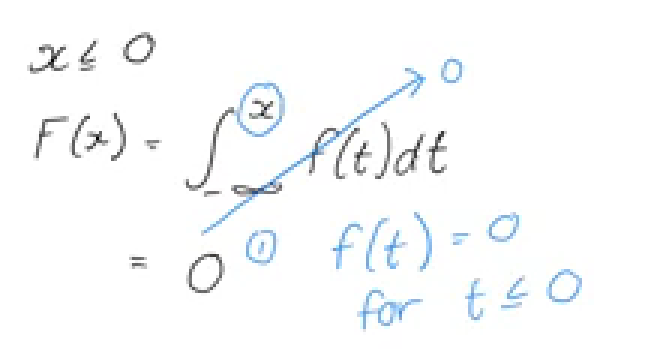 x ≤ 0
F(x) = ∫_{-∞}^{x} f(t)dt → 0
= 0 ① f(t) = 0
for t ≤ 0